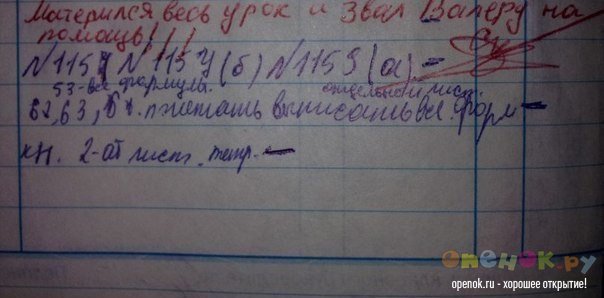 Матерился весь урок и звал Валеру на
помощь!!!
№1154 №1154(б) №1159(а) –
53-все формулы. отдельной лист.
62,63, 64. прочитать выписать все форм –
кн. 2-ой лист. тетр. –
опенок.ру
openok.ru - хорошее открытие!